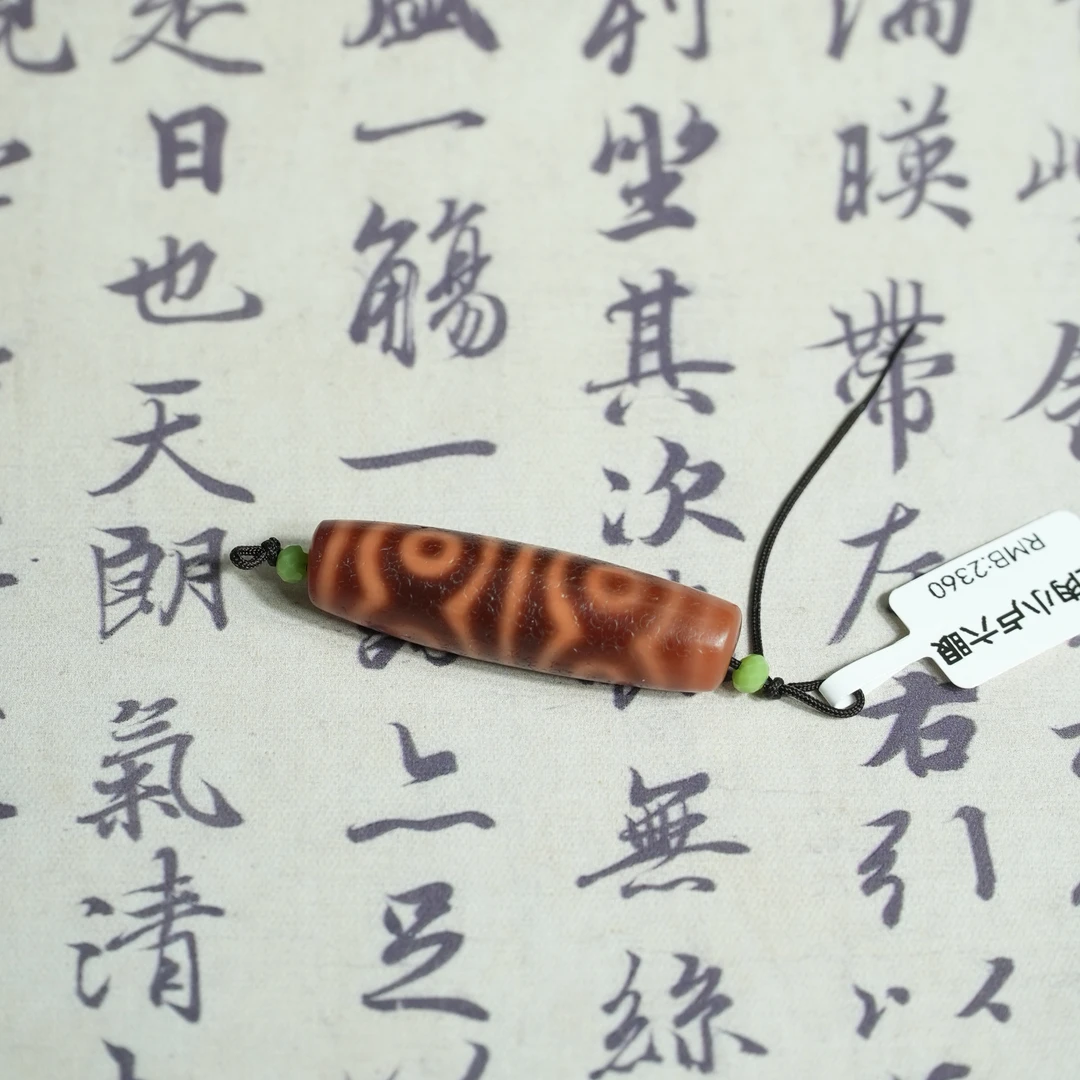 湍暎帶左右引以
列坐其次無絲
盛一觴一亦足以
是日也天朗氣清
肉小卢六眼
RMB:2360